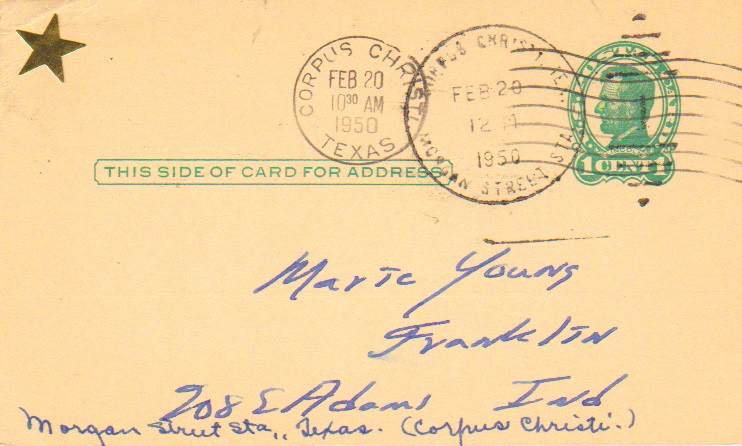 CORPUS CHRISTI
FEB 20
10 30 AM
1950
TEXAS
CORPUS CHRISTI, TEX.
FEB 20
12 M
1950
MORGAN STREET STA.
1 CENT 1
THIS SIDE OF CARD FOR ADDRESS
Marie Young
Franklin
208 E Adams Ind
Morgan Street Sta., Texas. (Corpus Christi.)